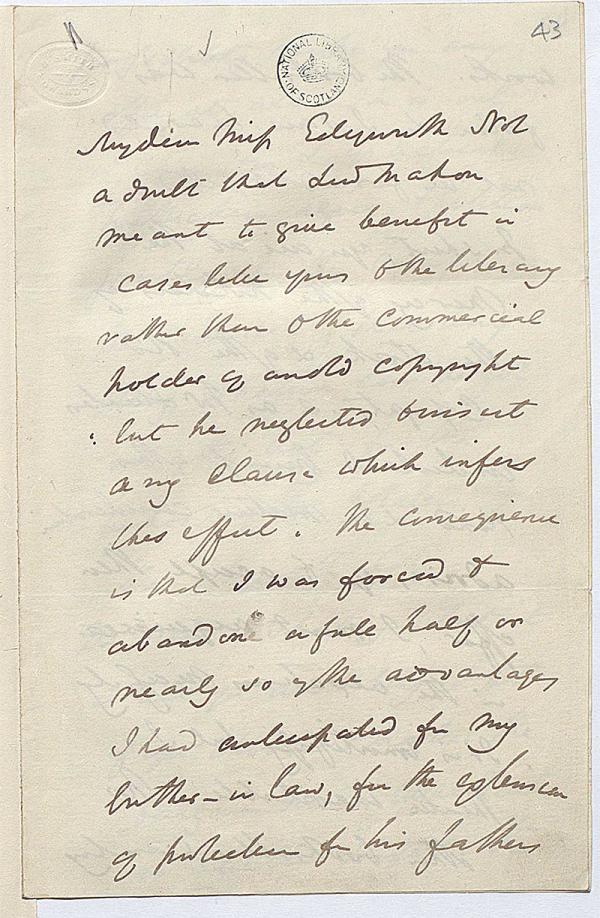 43
NATIONAL LIBRARY OF SCOTLAND
My dear Miss Edgeworth Not
a doubt that Lord Mahon
meant to give benefit in
cases like yours to the literary
rather than to the commercial
holder of an old copyright
but he neglected to insert
any clause which infers
this effect. The consequence
is that I was forced to
abandon a full half or
nearly so of the advantages
I had anticipated for my
brother-in law, for the extension
of protection for his fathers